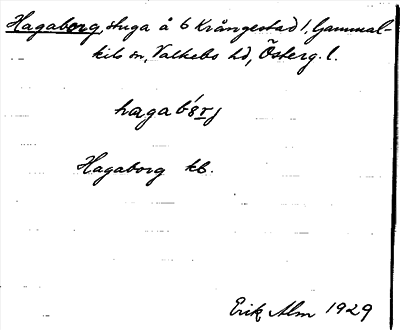 Hagaborg, stuga å 6 Krångestad, Gammal-
kils sn, Valkebo hd, Österg. l.
Hagaborg kb.
Erik Alm 1929